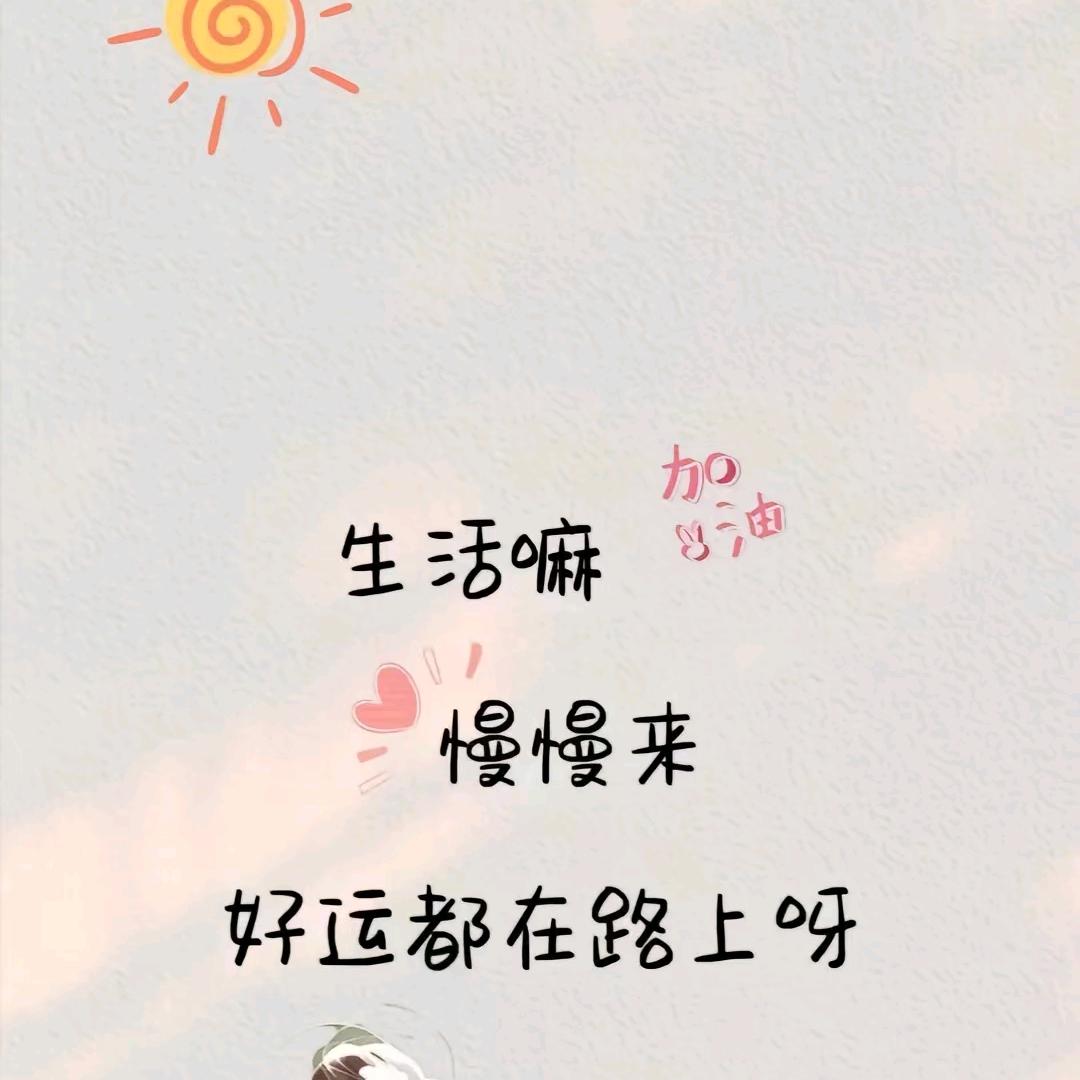 加油
生活嘛
慢慢来
好运都在路上呀